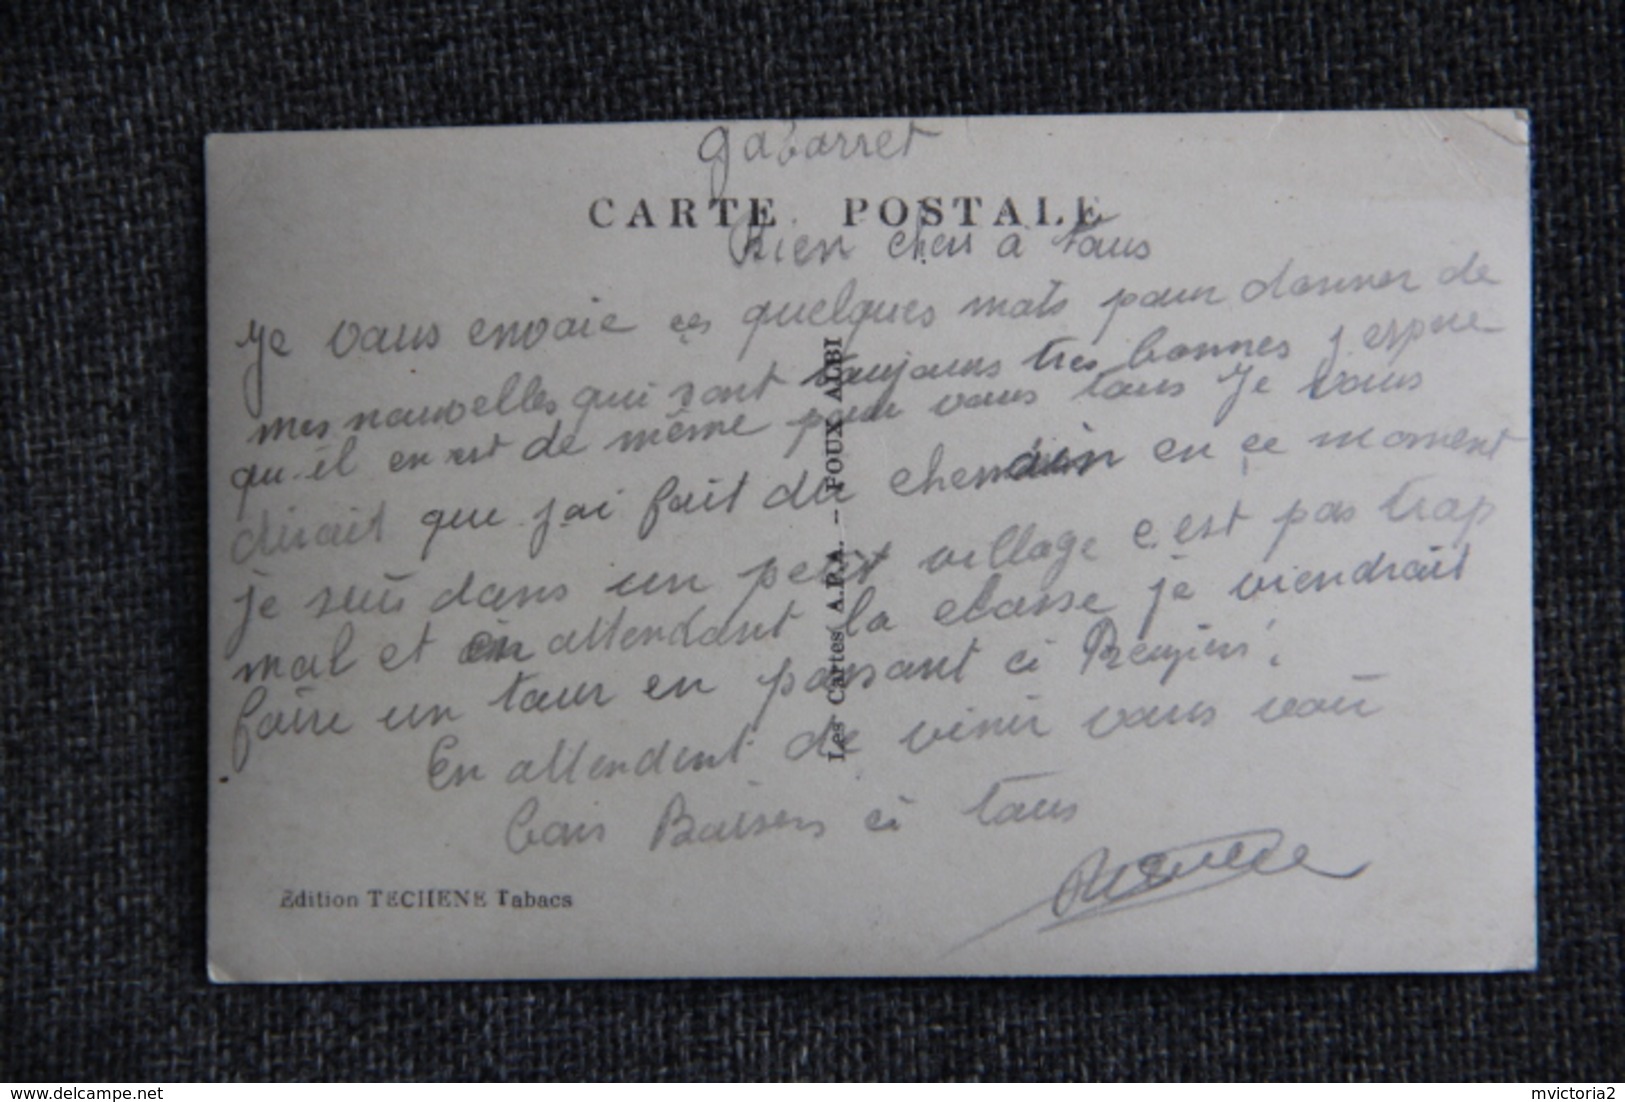 Gabarret
CARTE POSTALE
Bien chers à tous
Je vous envoie ces quelques mots pour donner de
mes nouvelles qui sont toujours très bonnes j espère
qu'il en est de même pour vous tous Je vous
dirait que j'ai fait du chemin en ce moment
je suis dans un petit village c'est pas trop
mal et en attendant la classe je viendrait
faire un tour en passant à
En attendent de venir vous voir
bons Baisers à tous
Edition TECHENE Tabacs
Les Cartes A.P.A. - POUX ALBI
delcampe.net
mvictoria2